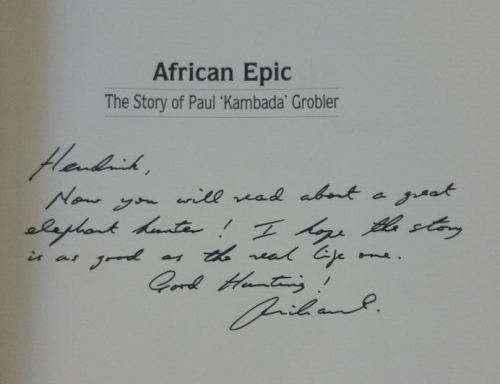 African Epic
The Story of Paul 'Kambada' Grobler
Hendrik,
Now you will read about a great
elephant hunter! I hope the story
is as good as the real life one.
Good Hunting!